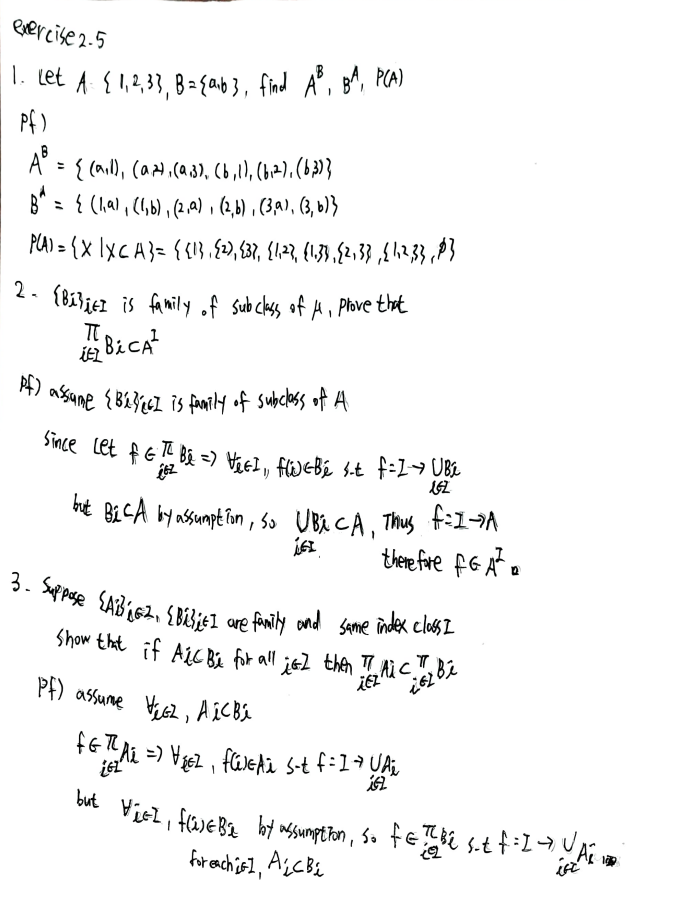 exercise 2.5
1. Let A = {1,2,3}, B = {a,b}, find A^B, B^A, P(A)
Pf)
A^B = { (a,1), (a,2), (a,3), (b,1), (b,2), (b,3)}
B^A = { (1,a), (1,b), (2,a), (2,b), (3,a), (3,b)}
P(A) = {X | X⊂A} = {{1}, {2}, {3}, {1,2}, {1,3}, {2,3}, {1,2,3}, ∅}
2. {Bi}i∈I is family of subclass of A, prove that
π i∈I Bi ⊂ A^I
Pf) assume {Bi}i∈I is family of subclass of A
Since Let f ∈ π i∈I Bi => ∀i∈I, f(i)∈Bi s.t f=I→ ∪ i∈I Bi
but Bi⊂A by assumption, so ∪ i∈I Bi ⊂ A, Thus f=I→A
therefore f∈A^I
3. Suppose {Ai}i∈I, {Bi}i∈I are family and same index class I
show that if Ai⊂Bi for all i∈I then π i∈I Ai ⊂ π i∈I Bi
Pf) assume ∀i∈I, Ai⊂Bi
f∈ π i∈I Ai => ∀i∈I, f(i)∈Ai s-t f=I→ ∪ i∈I Ai
but ∀i∈I, f(i)∈Bi by assumption, so f∈ π i∈I Bi s.t f=I→ ∪ i∈I Ai
for each i∈I, Ai⊂Bi